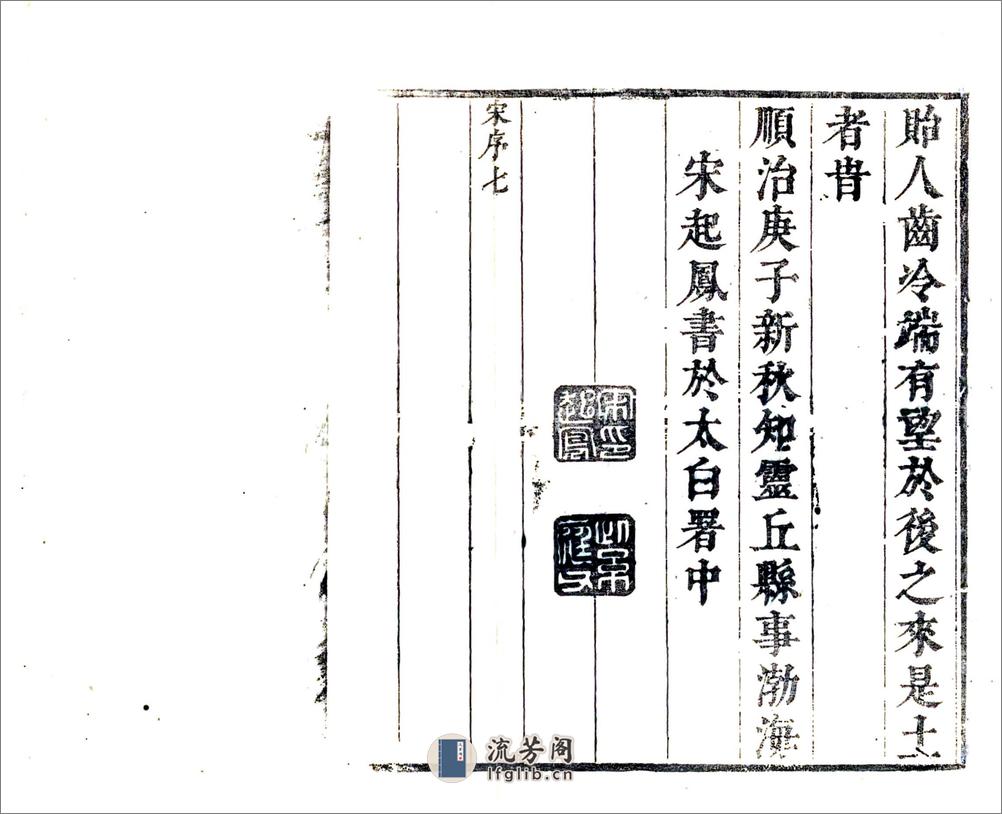 貽人齒冷端有望於後之來是土
者旹
順治庚子新秋知靈丘縣事渤海
宋起鳳書於太白署中
宋印起鳳
宋序七
流芳阁
lfglib.cn